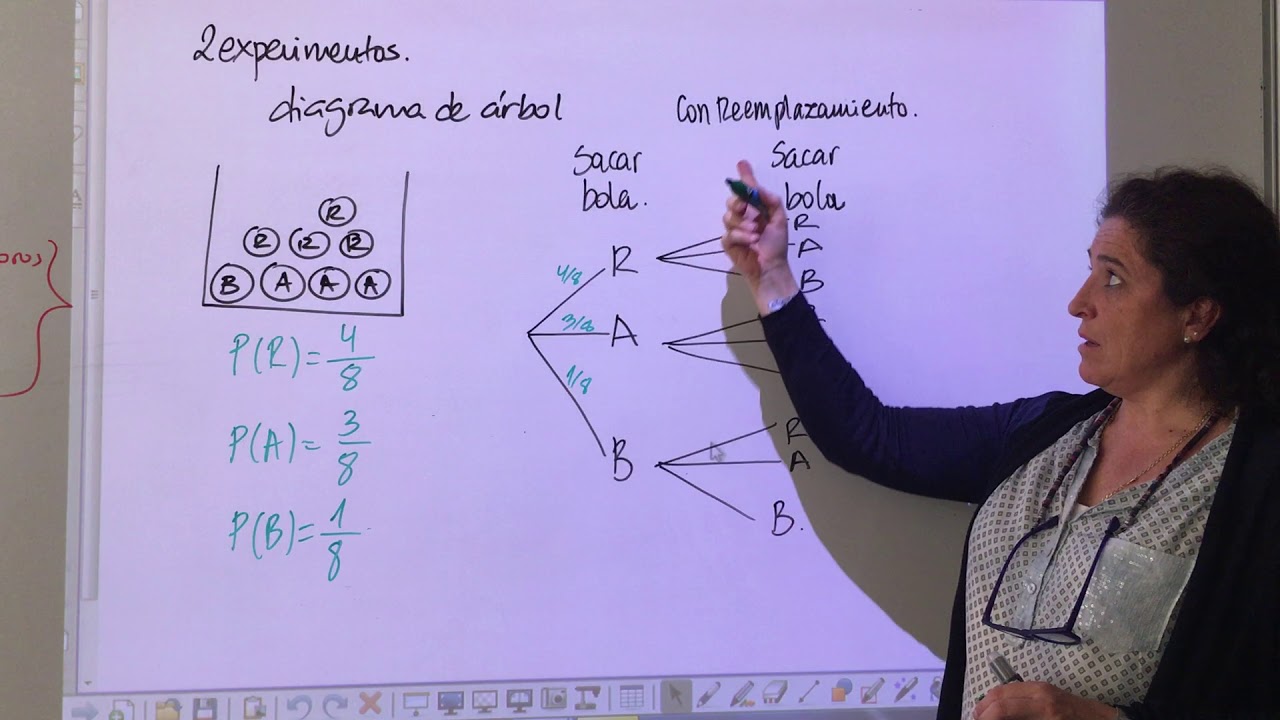 2 experimentos.
diagrama de árbol
Con Reemplazamiento.
Sacar
bola.
Sacar
bola
R
R R R
B A A A
P(R)= 4/8
P(A)= 3/8
P(B)= 1/8
4/8
R
3/8
A
1/8
B
R
A
B
R
A
B.